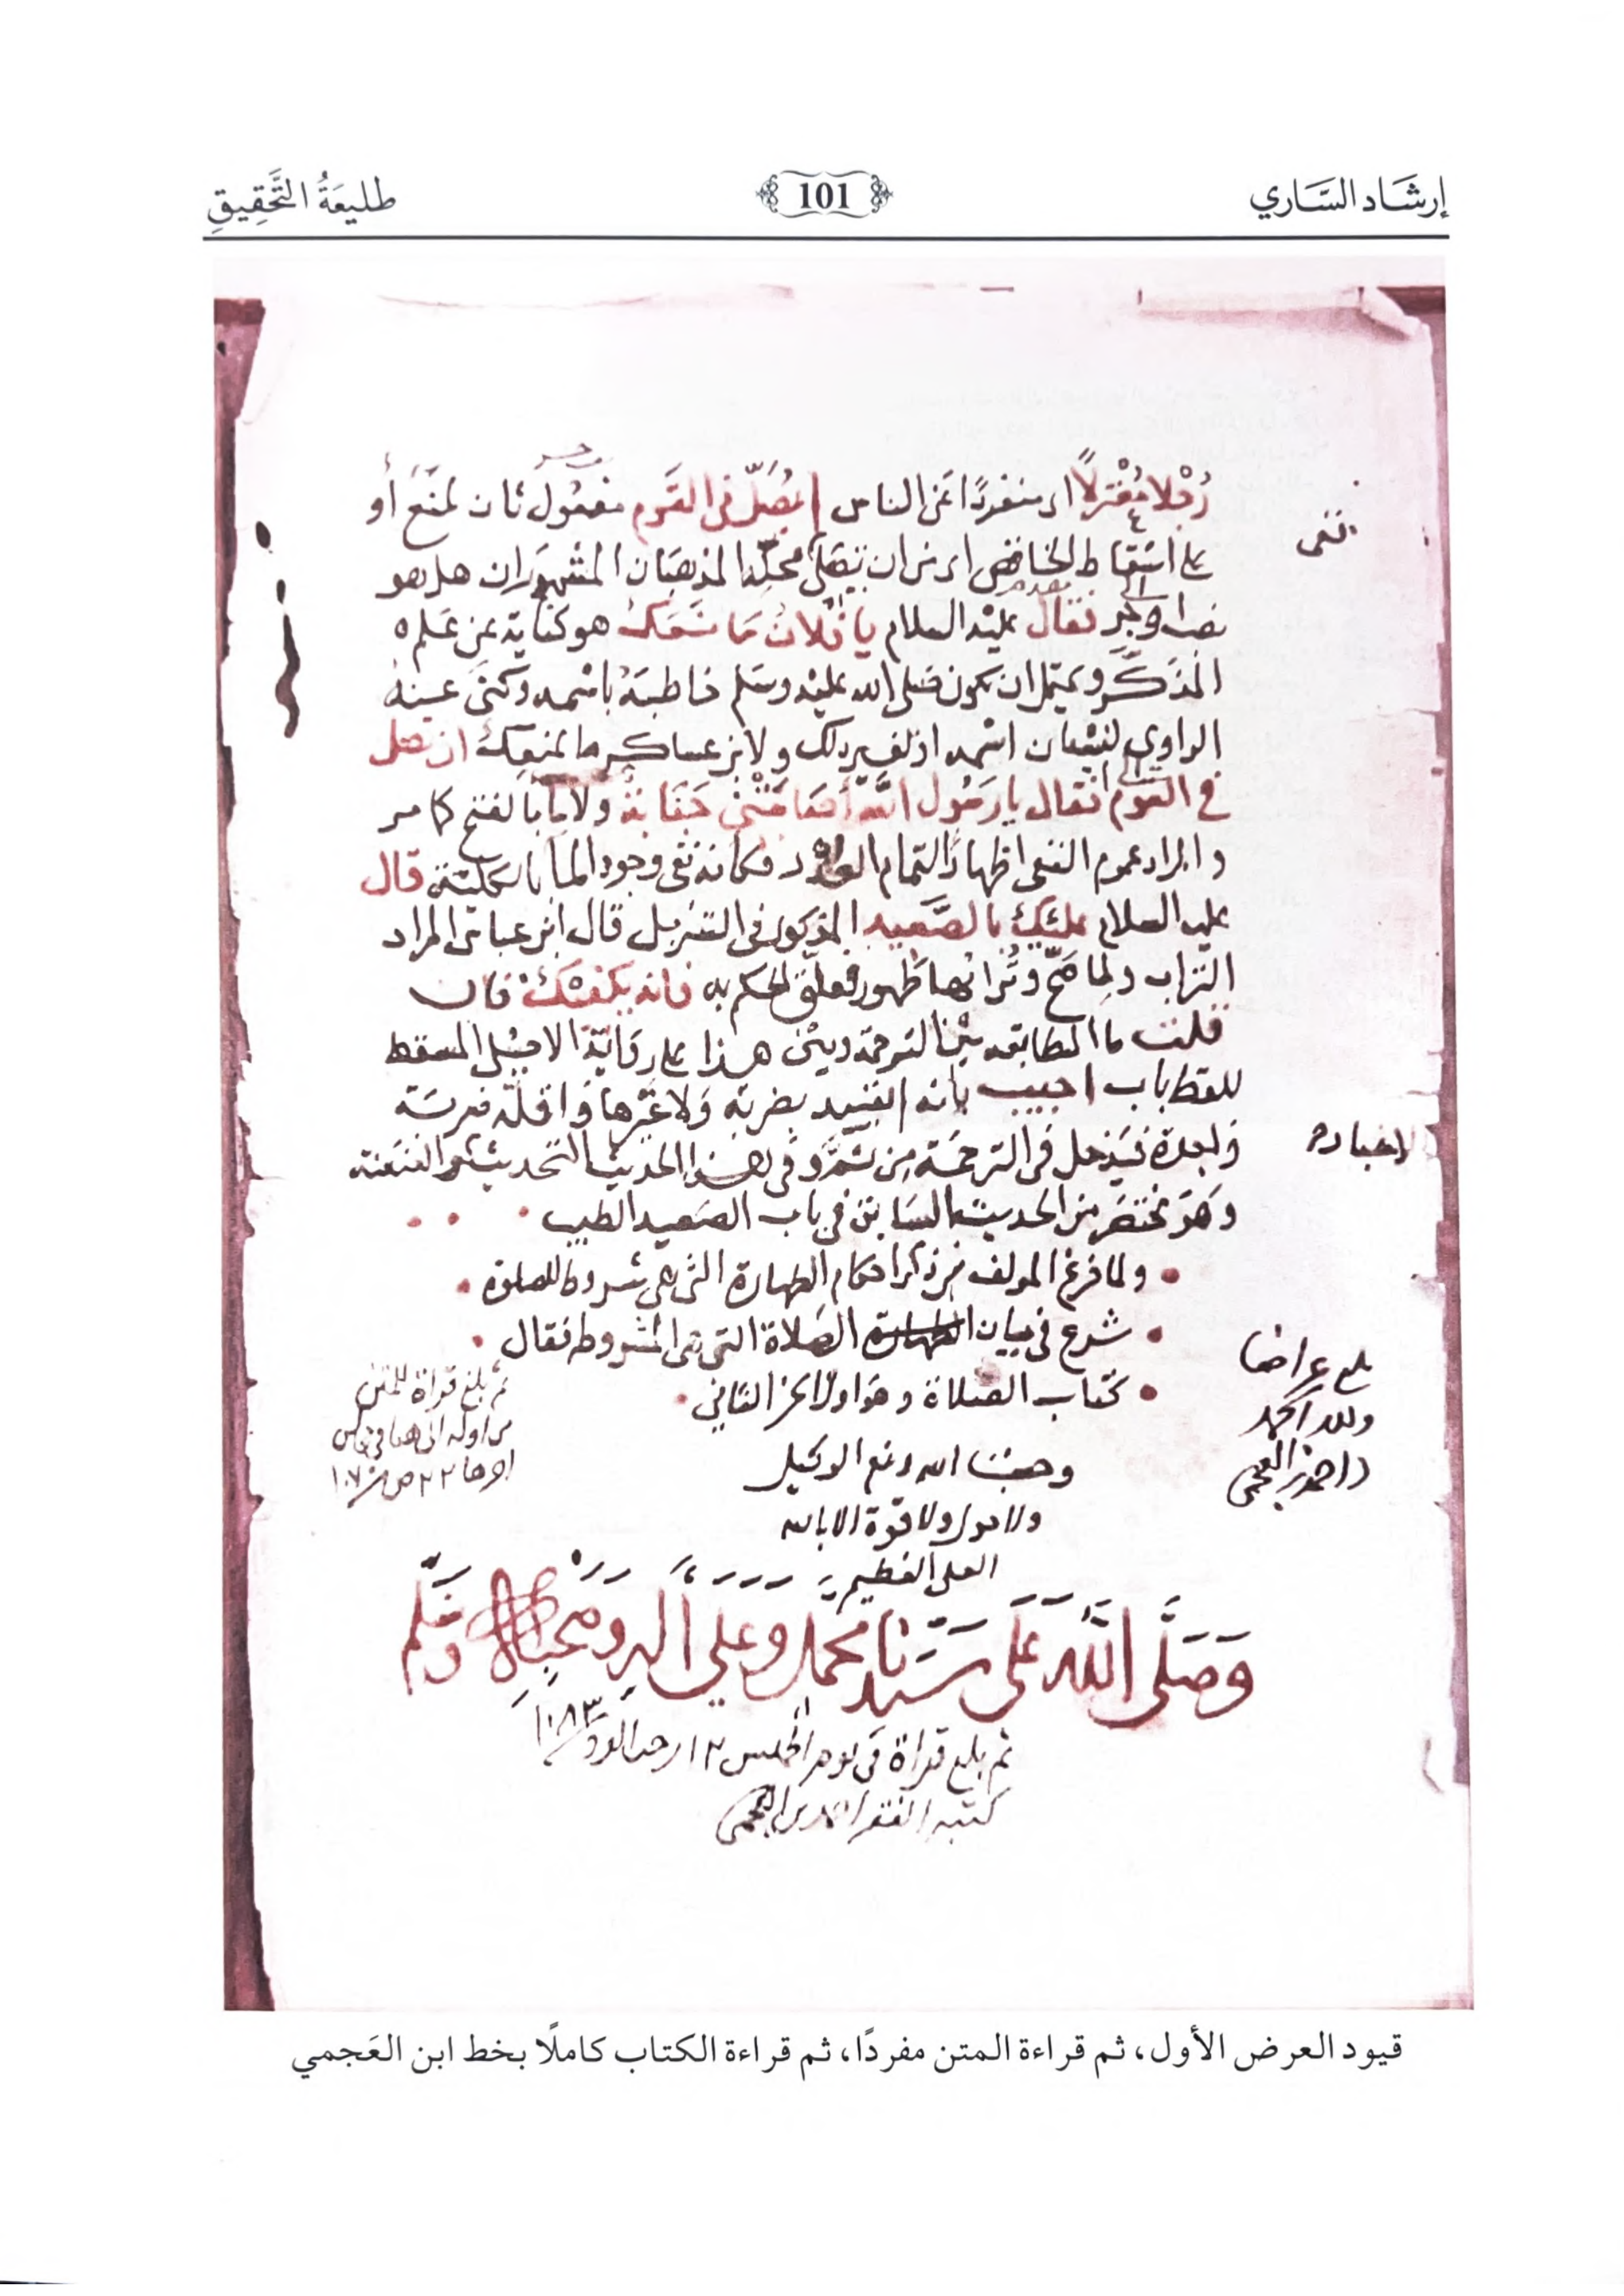 إرشَاد السَّاري
101
طليعَةُ التَّحقِيقِ
رَجُلا مُعْتزلًا اى منفردًا عن الناس لم يُصَلّ فى القوم مفعول ثان لمنع أو
على اسقاط الخافض اى من ان تصلى محله المذهبان المشهوران هل هو
نصب او جر فقال عليه السلام يا فلانُ مَا منعَكَ هو كناية عن عَلم
المذكر ويحتمل ان يكون صَلى الله عليه وسَلم خاطبهُ باسمه وكنى عنه
الراوى لنسْيان اسْمه او لغير ذلك ولابن عساكر ما يمنعكَ ان تصلى
فى القوم فقال يا رَسُول الله أصَابَتْنى جَنَابة ولا مَا بالفتح كما مر
والمراد عموم النفى اظهارًا لتمام العذر فكأنه نفى وجود الما بالكلية قال
عليه السلام عليْكَ بالصَّعيد المذكور فى التنزيل قال ابن عباس المراد
التراب ولما صَحّ وترابها طهور تعلّق الحكم به فانه يكفيْكَ فان
قلت ما المطابقة بيْن الترجمة وبيْن هذا على رواية الاصيلى المسقط
للفظ باب اجيب بانه لم يقيد بضربة وَلا غيرها وَاقله ضربة
وَاحدة فيَدخل فى الترجمَة مِن ثمَّ وفى هذا الحديث التحديث والعَنعَنة
وَهوَ مختصَر من الحديث السَابق فى باب الصَعيد الطيب
ولما فرغ المولف من ذكر احكام الطهارة التى هى شروط للصلوة
شرع فى بيان الصَلاة التى هى المشروط فقال
كتاب الصَلاة وهوَ اول الجز الثانى
وحسْبنا الله ونعم الوكيل
ولا حول ولا قوة الا بالله
العلى العظيم
وَصَلَّى اللَّه عَلَى سَيِّدِنا محمد وعَلى آله وصَحبه وسَلم
نفى
الاخبار
بلغ عراضا
ولله الحمد
احمد بن العجمى
ثم بلغ قراة للمتن
من اوله الى هنا فى مجالس
اخرها
ثم بلغ قراة فى يوم الخميس ١٢ رجب الفرد ١٠٨٣
كتبه الفقير احمد بن العجمى
قيود العرض الأول، ثم قراءة المتن مفردًا، ثم قراءة الكتاب كاملًا بخط ابن العَجمي